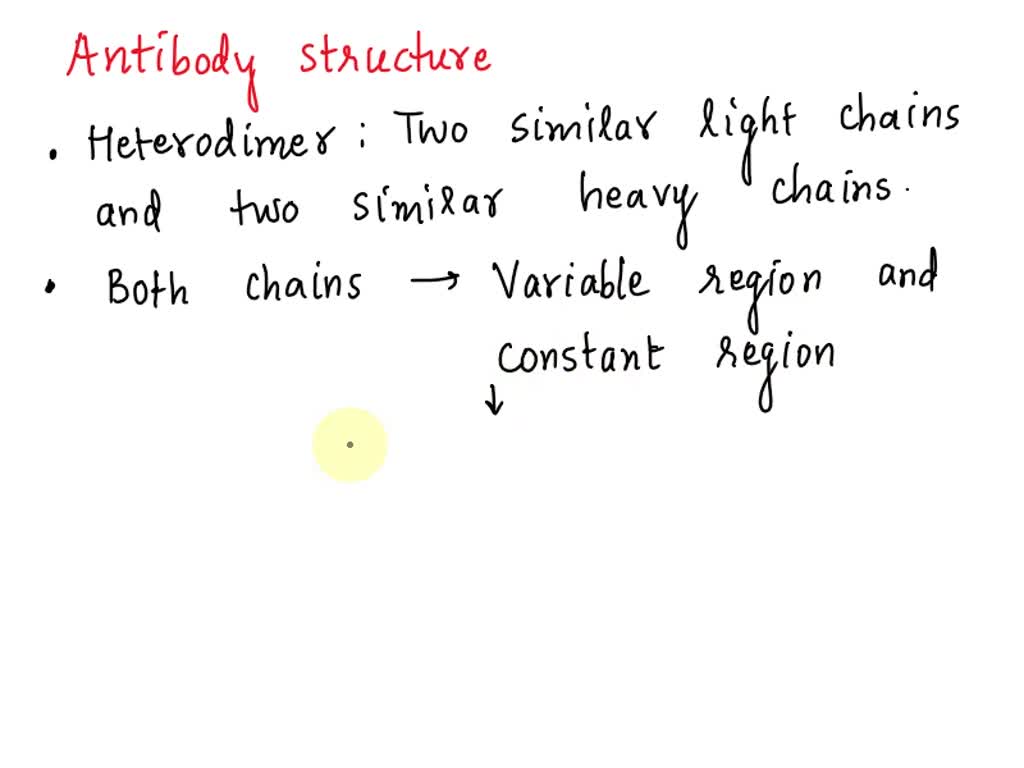 Antibody structure
• Heterodimer : Two similar light chains
and two similar heavy chains.
• Both chains → Variable region and
constant region
↓